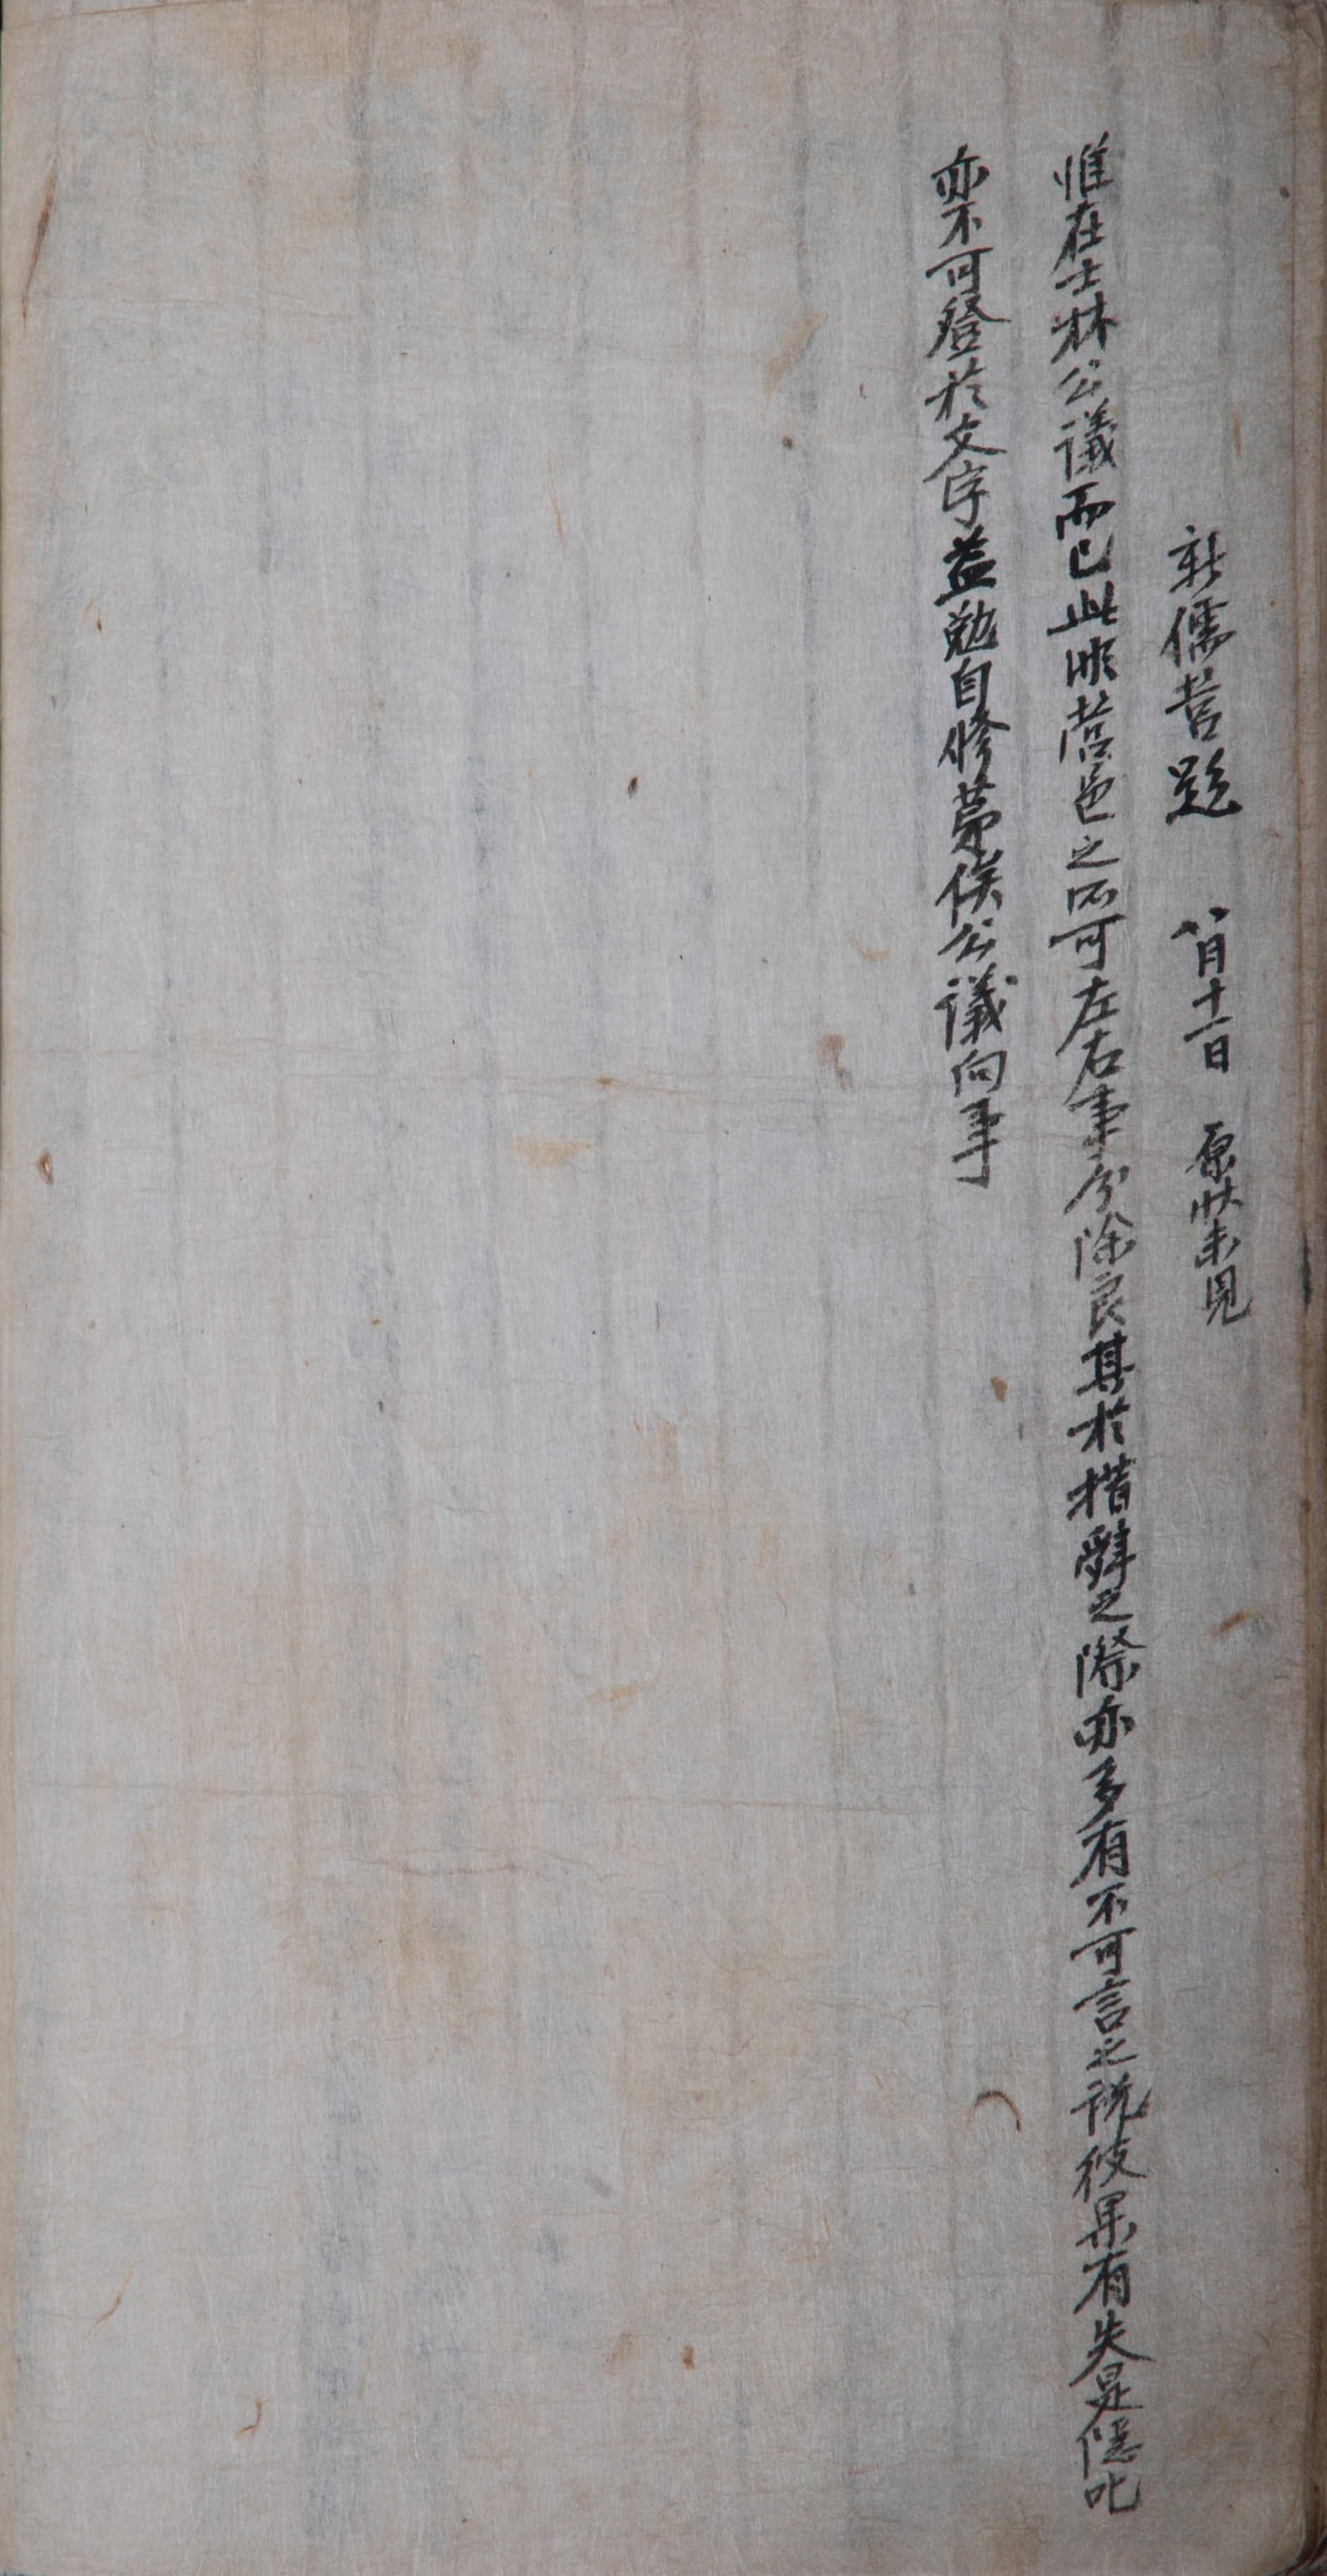 新儒營題 八月十一日 原狀未見
惟在士林公議而已此非營邑之所可左右事分除良其於措辭之際亦多有不可言之說彼果有失是隱叱
亦不可登於文字益勉自修第俟公議向事